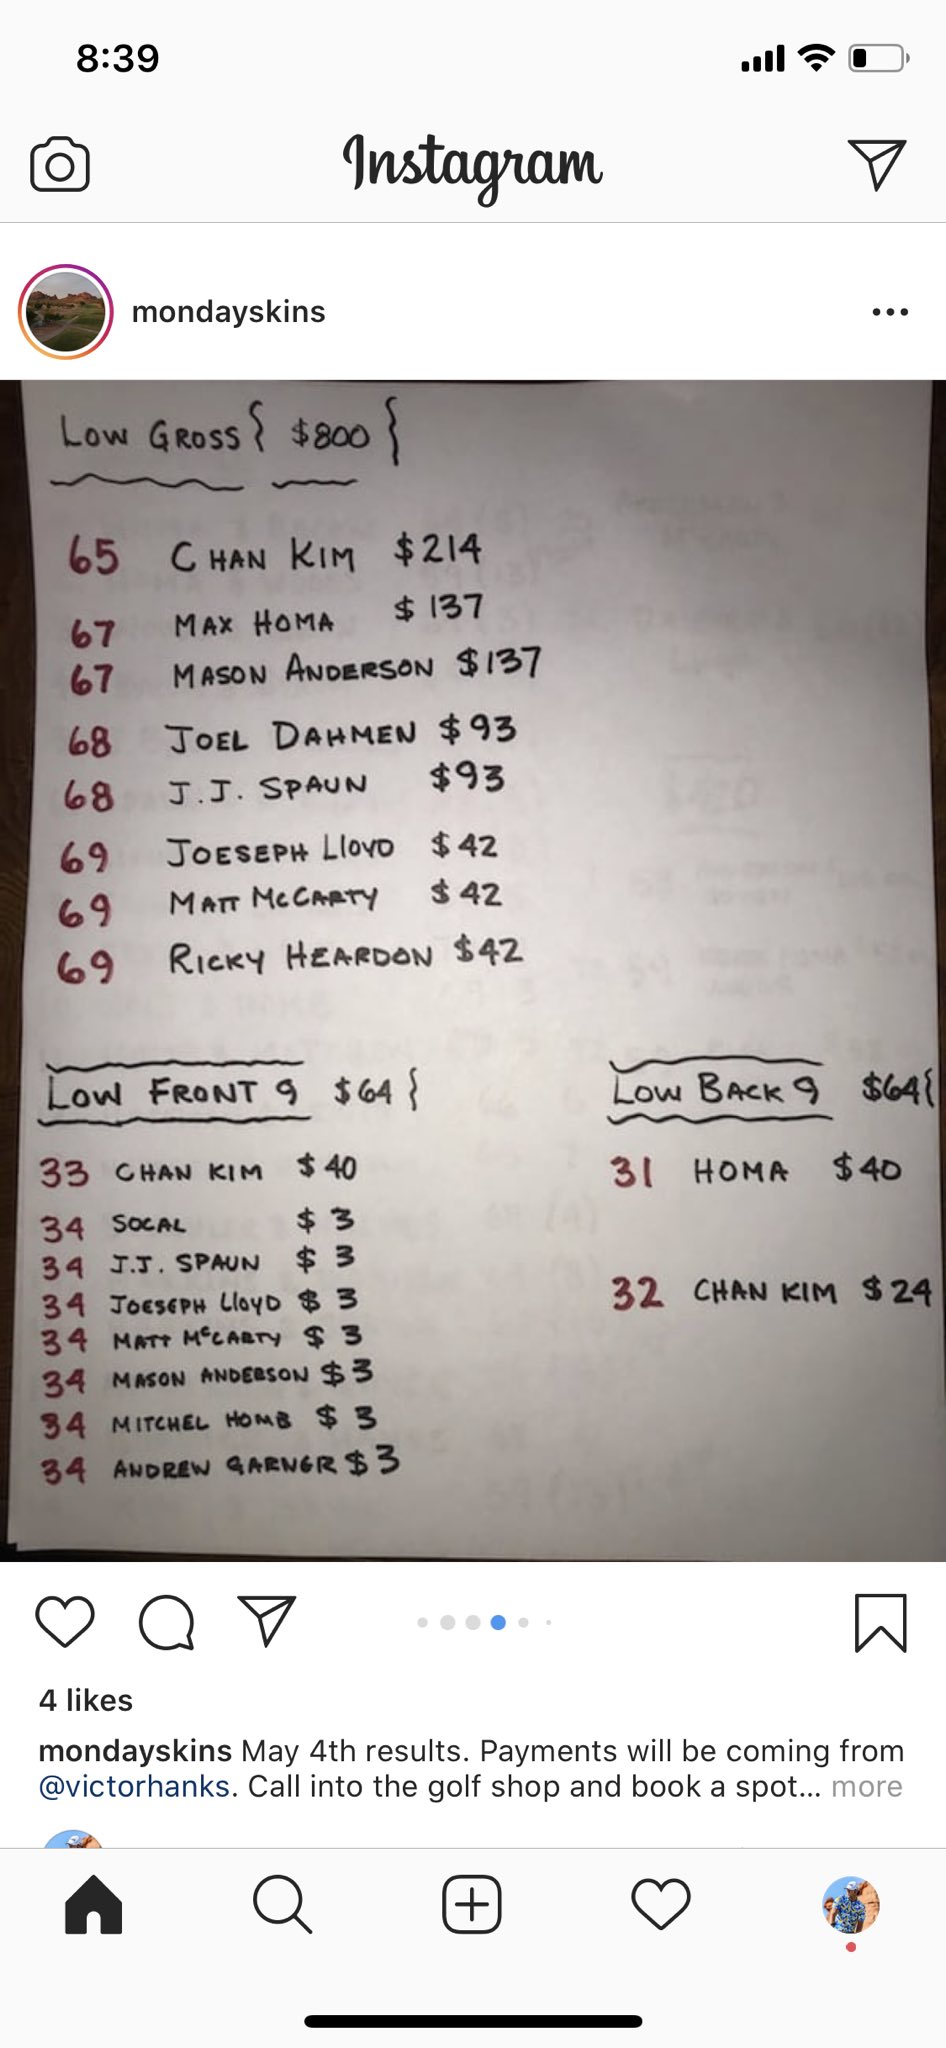 8:39
Instagram
mondayskins
LOW GROSS { $800 {
65 CHAN KIM $214
67 MAX HOMA $137
67 MASON ANDERSON $137
68 JOEL DAHMEN $93
68 J.J. SPAUN $93
69 JOESEPH LLOYD $42
69 MATT McCARTY $42
69 RICKY HEARDON $42
LOW FRONT 9 $64 {
33 CHAN KIM $40
34 SOCAL $3
34 J.J. SPAUN $3
34 JOESEPH LLOYD $3
34 MATT McCARTY $3
34 MASON ANDERSON $3
34 MITCHEL HOMB $3
34 ANDREW GARNER $3
LOW BACK 9 $64 {
31 HOMA $40
32 CHAN KIM $24
4 likes
mondayskins May 4th results. Payments will be coming from
@victorhanks. Call into the golf shop and book a spot... more